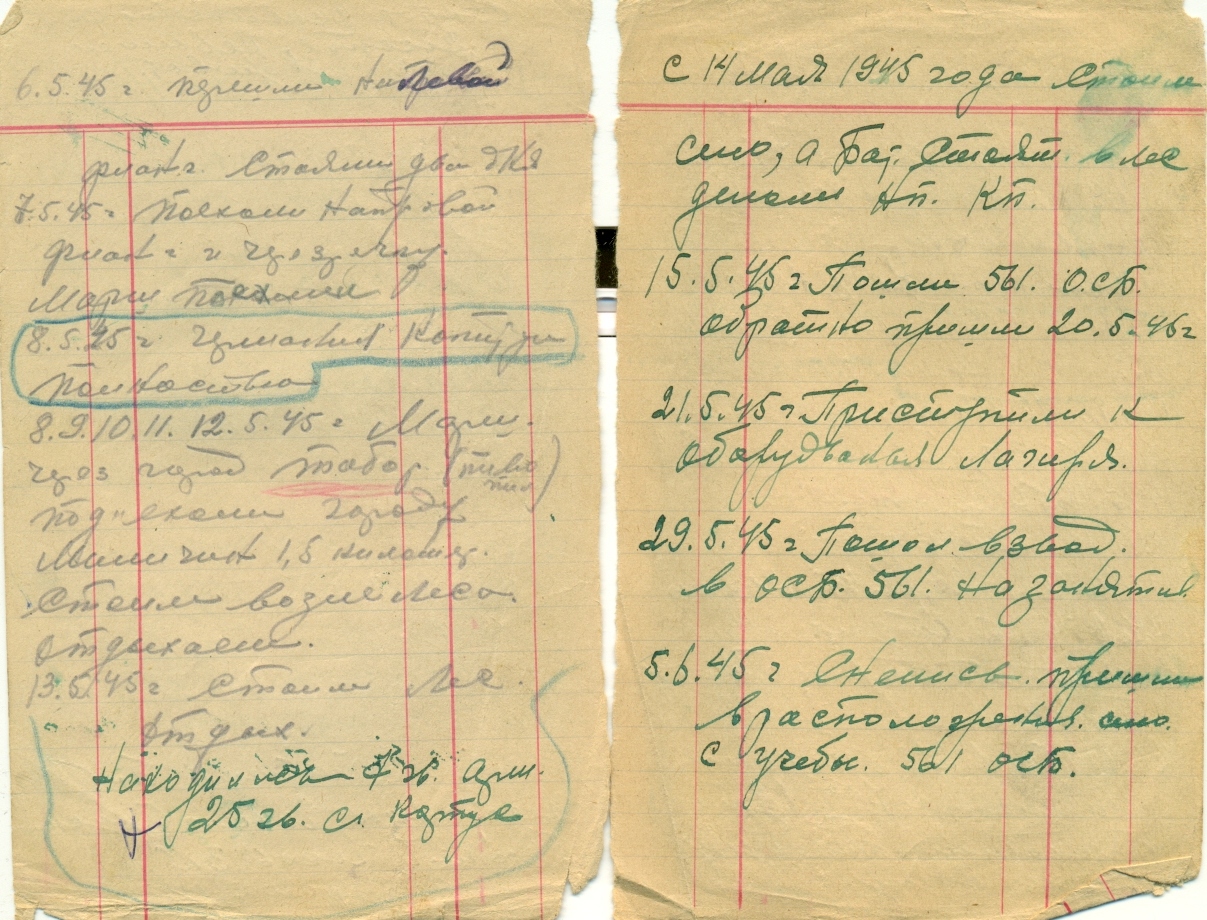 6.5.45 г. пришли На левой
фланг. Стояли два дня
7.5.45 г Поехали На правой
фланг и через речку.
Марш Поехали
8.5.45 г Германия Капитули
полностью
8.9.10.11.12.5.45 г Марш.
через город табор. (пиво
пил)
под"ехали городу
Миличин 1,5 километ.
Стоим возле Леса.
отдыхаем.
13.5.45 г Стоим Лес.
отдых.
Находились гв. арм.
25 гв. Сл. Корпус
С 14 Мая 1945 года Стоим
село, а Бат. Стоят. в лес
делали Нп. Кп.
15.5.45 г Пошли 561. О.С.Б.
обратно пришли 20.5.45 г
21.5.45 г Приступили к
оборудованья Лагеря.
29.5.45 г Пошол взвод.
в ОСБ. 561. На занятия
5.6.45 г Снелись. пришли
в расположения. село.
с учебы. 561 ОСБ.